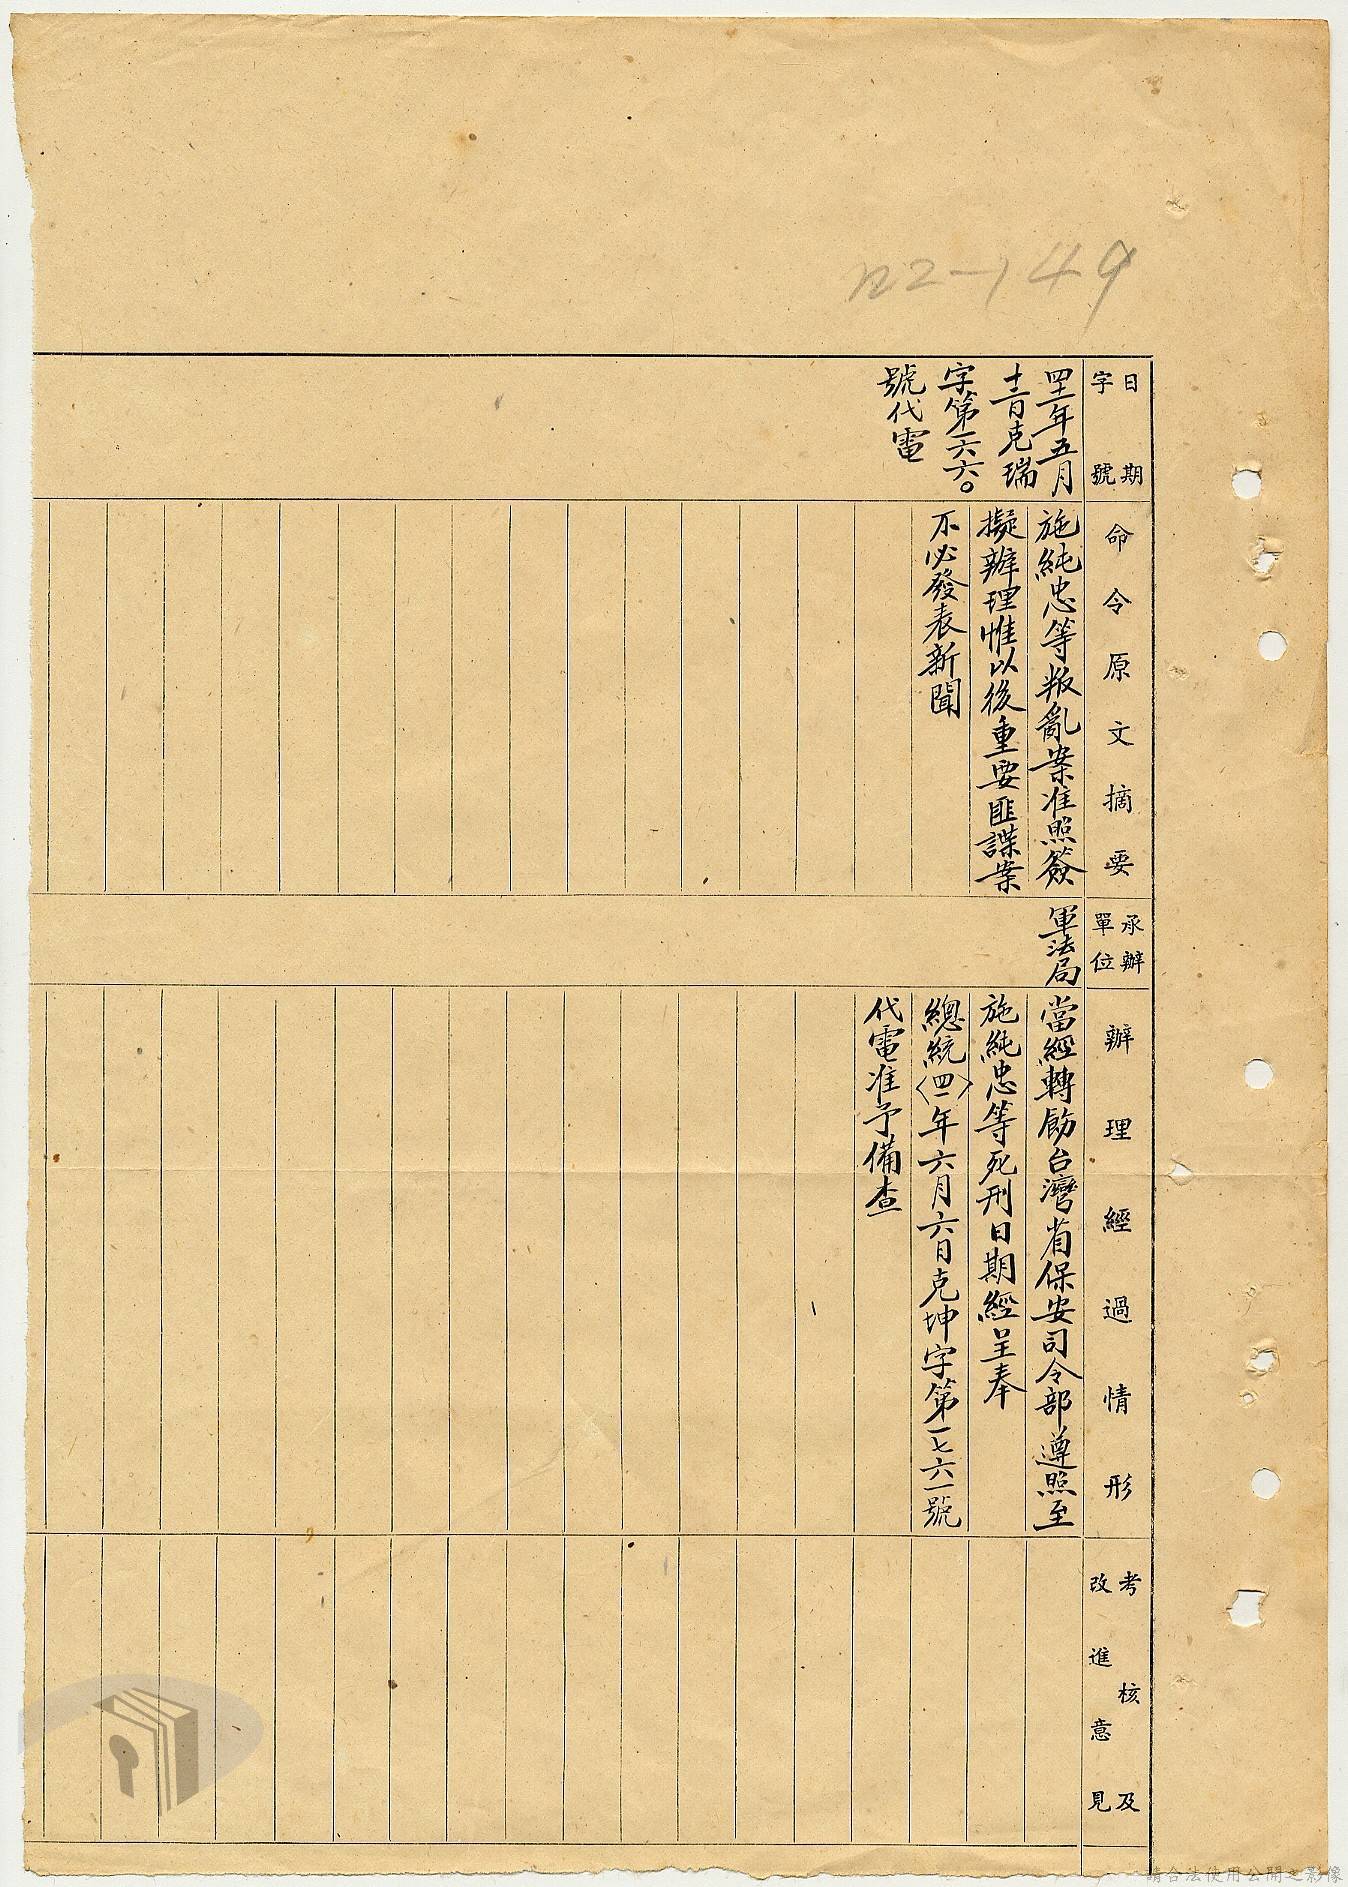 122-149
日期
字號
命令原文摘要
承辦
單位
辦理經過情形
考核及
改進意見
四十一年五月
十三日克瑞
字第一六六〇
號代電
施純忠等叛亂案准照簽
擬辦理惟以後重要匪諜案
不必發表新聞
軍法局
當經轉飭台灣省保安司令部遵照至
施純忠等死刑日期經呈奉
總統〈四一〉年六月六日克坤字第一七六一號
代電准予備查
請合法使用公開之影像